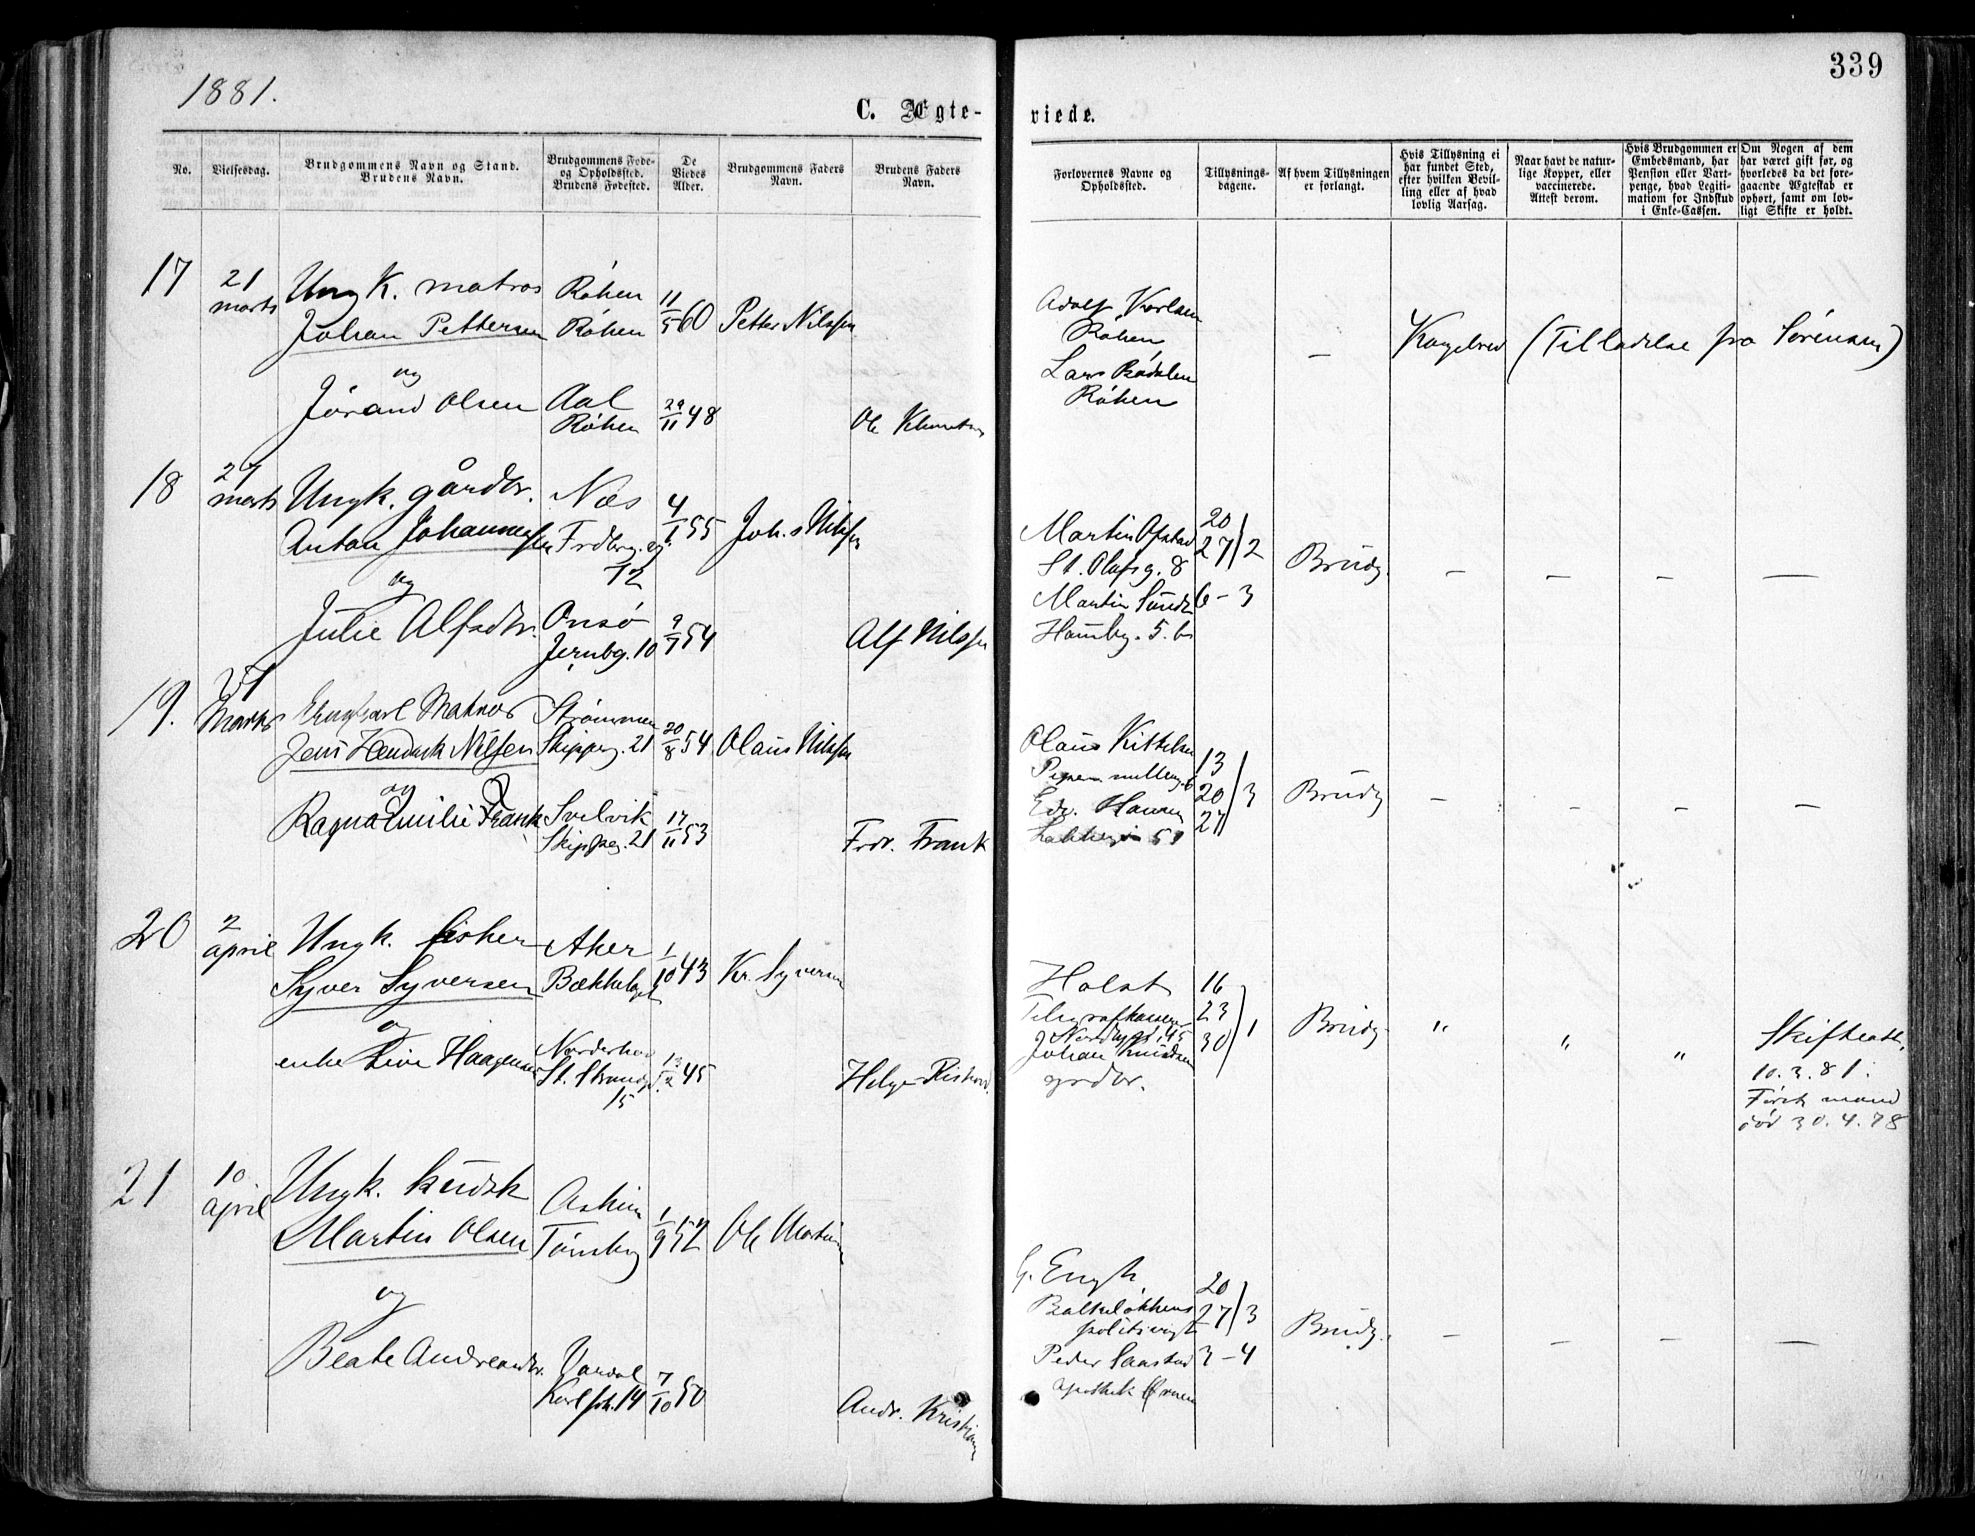 339
1881.
C. Ægte-
viede.
No.
Vielsesdag.
Brudgommens Navn og Stand.
Brudens Navn.
Brudgommens Føde-
og Opholdssted.
Brudens Fødested.
De
Viedes
Alder.
Brudgommens Faders
Navn.
Brudens Faders
Navn.
Forlovernes Navne og
Opholdssted.
Tillysnings-
dagene.
Af hvem Tillysningen
er forlangt.
Hvis Tillysning ei
har fundet Sted,
efter hvilken Bevil-
ling eller af hvad
lovlig Aarsag.
Naar havt de natur-
lige Kopper, eller
vaccinerede.
Attest derom.
Hvis Brudgommen er
Embedsmand, har
Pension eller Vart-
penge, hvad Legiti-
mation for Indskud
i Enke-Cassen.
Om Nogen af dem
har været gift før, og
hvorledes da det fore-
gaaende Ægteskab er
ophørt, samt om lov-
ligt Skifte er holdt.
17
21
marts
Ungk. matros
Johan Pettersen
og
Jörand Olsen
Röken
Röken
Aal
Röken
11/5 60
29/11 48
Petter Nilssen
Ole
Adolf
Röken
Lars Bödalen
Röken
—
(Tilladelse fra Sörensen)
18
27
marts
Ungk. gårdbr.
Anton Johannessen
og
Julie Alfsdtr.
Næs
12
Onsö
Jernbg. 10
4/1 55
9/7 54
Joh.s Nilssen
Alf Nilssen
Martin
St. Olafsg. 8
Martin
5. b
20
27/2
6 - 3
Brudg.
— — — —
19.
27
Marts
Ungkarl Matros
Jens Hendrick Nilsen
og
Ragna Emilie Frank
Strömmen
Skipperg. 21
Svelvik
Skipperg. 21
20/8 54
17/11 53
Olaus Nilssen
Fredr. Frank
Olaus Kittelsen
Edv.
13
20/3
27
Brudg
— — — —
20
2
april
Ungk. fisker
Syver Syversen
og
enke Live Haagensen
Aker
Bækkelaget
Norderhov
St. Strandg.
15
1/10 43
13/2 45
Kr. Syversen
Helge
Holst
Johan Knudsen
gårdbr.
16
23
30/1
Brudg.
" " "
Skifteatt.
10. 3. 81.
Förste mand
död 30. 4. 78
21
10
april
Ungk. kudsk
Martin Olsen
og
Beate Andreasdtr.
Askim
Tönsbg
Vardal
Karl joh. 14
1/9 52
7/10 50
Ole Martinsen
Andr. Kristians
G. Engh
politivagt
Peder Saastad
apothek Ørnen
20
27/3
3 - 4
Brudg.
— — — —